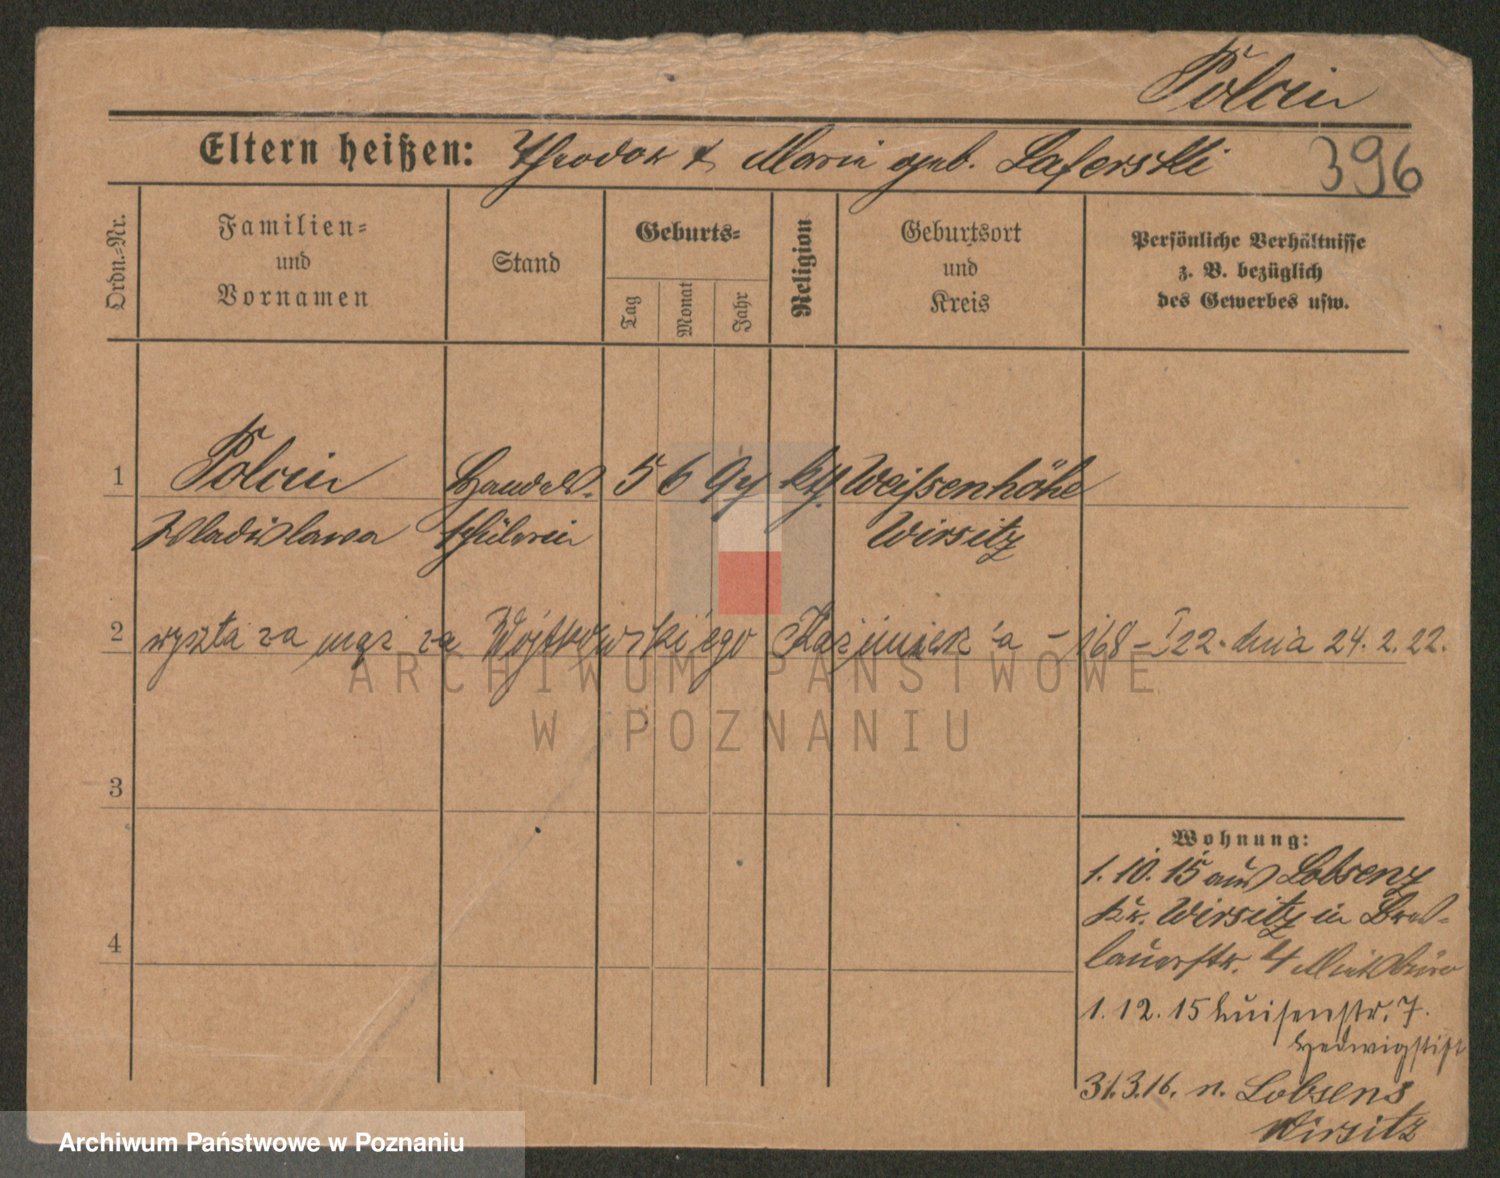 Polcin
Eltern heißen: Theodor & Marie geb. Laferski
396
Ordn.-Nr.
Familien-
und
Vornamen
Stand
Geburts-
Tag
Monat
Jahr
Religion
Geburtsort
und
Kreis
Persönliche Verhältnisse
z. B. bezüglich
des Gewerbes usw.
1 Polcin Handels- 5 6 97 kth. Weißenhöhe
Wladislawa schülerin Wirsitz
2 wyszła za mąż za Wójtkowskiego Kazimierz'a – 168–I22. dnia 24.2.22.
3
4
Wohnung:
1.10.15 aus Lobsenz
Kr. Wirsitz in Bres-
lauerstr. 4
1.12.15 Luisenstr. 7.
Hedwigstift
31.3.16. n. Lobsens
Wirsitz
ARCHIWUM PAŃSTWOWE
W POZNANIU
Archiwum Państwowe w Poznaniu